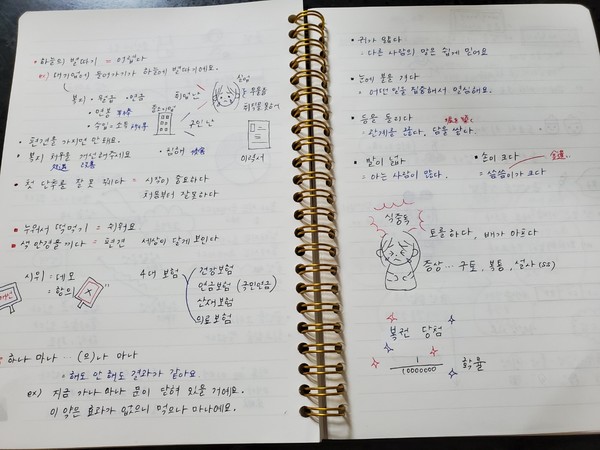 • 하늘의 별따기 = 어렵다
ex) 대기업에 들어가기가 하늘에 별따기예요.
복지 · 월급 · 연금
· 연봉
· 수입 = 소득
취업난
구인난
실업
이력서
• 편견을 가지면 안 돼요.
• 첫 단추를 잘 못 끼다 = 시작이 중요하다
처음부터 잘못하다
• 누워서 떡먹기 = 쉬워요
• 색안경을 끼다 = 편견 세상이 달게 보인다
시위 = 데모
= 항의
4대 보험
건강보험
연금보험 (국민연금)
산재보험
의료보험
하나 마나 … (으)나 마나
= 해도 안 해도 결과가 같아요.
ex) 지금 가나 마나 문이 닫혀 있을 거예요.
이 약은 효과가 없으니 먹으나 마나예요.
• 귀가 얇다
: 다른 사람의 말은 쉽게 믿어요
• 눈에 불을 켜다
: 어떤 일을 집중해서 열심해요.
• 등을 돌리다
: 관계를 끊다, 담을 쌓다.
• 발이 넓다
= 아는 사람이 많다.
• 손이 크다
= 씀씀이가 크다
식중독
토를 하다, 배가 아프다
증상 … 구토, 복통, 설사 (SS)
복권 당첨
1
1000000
확률